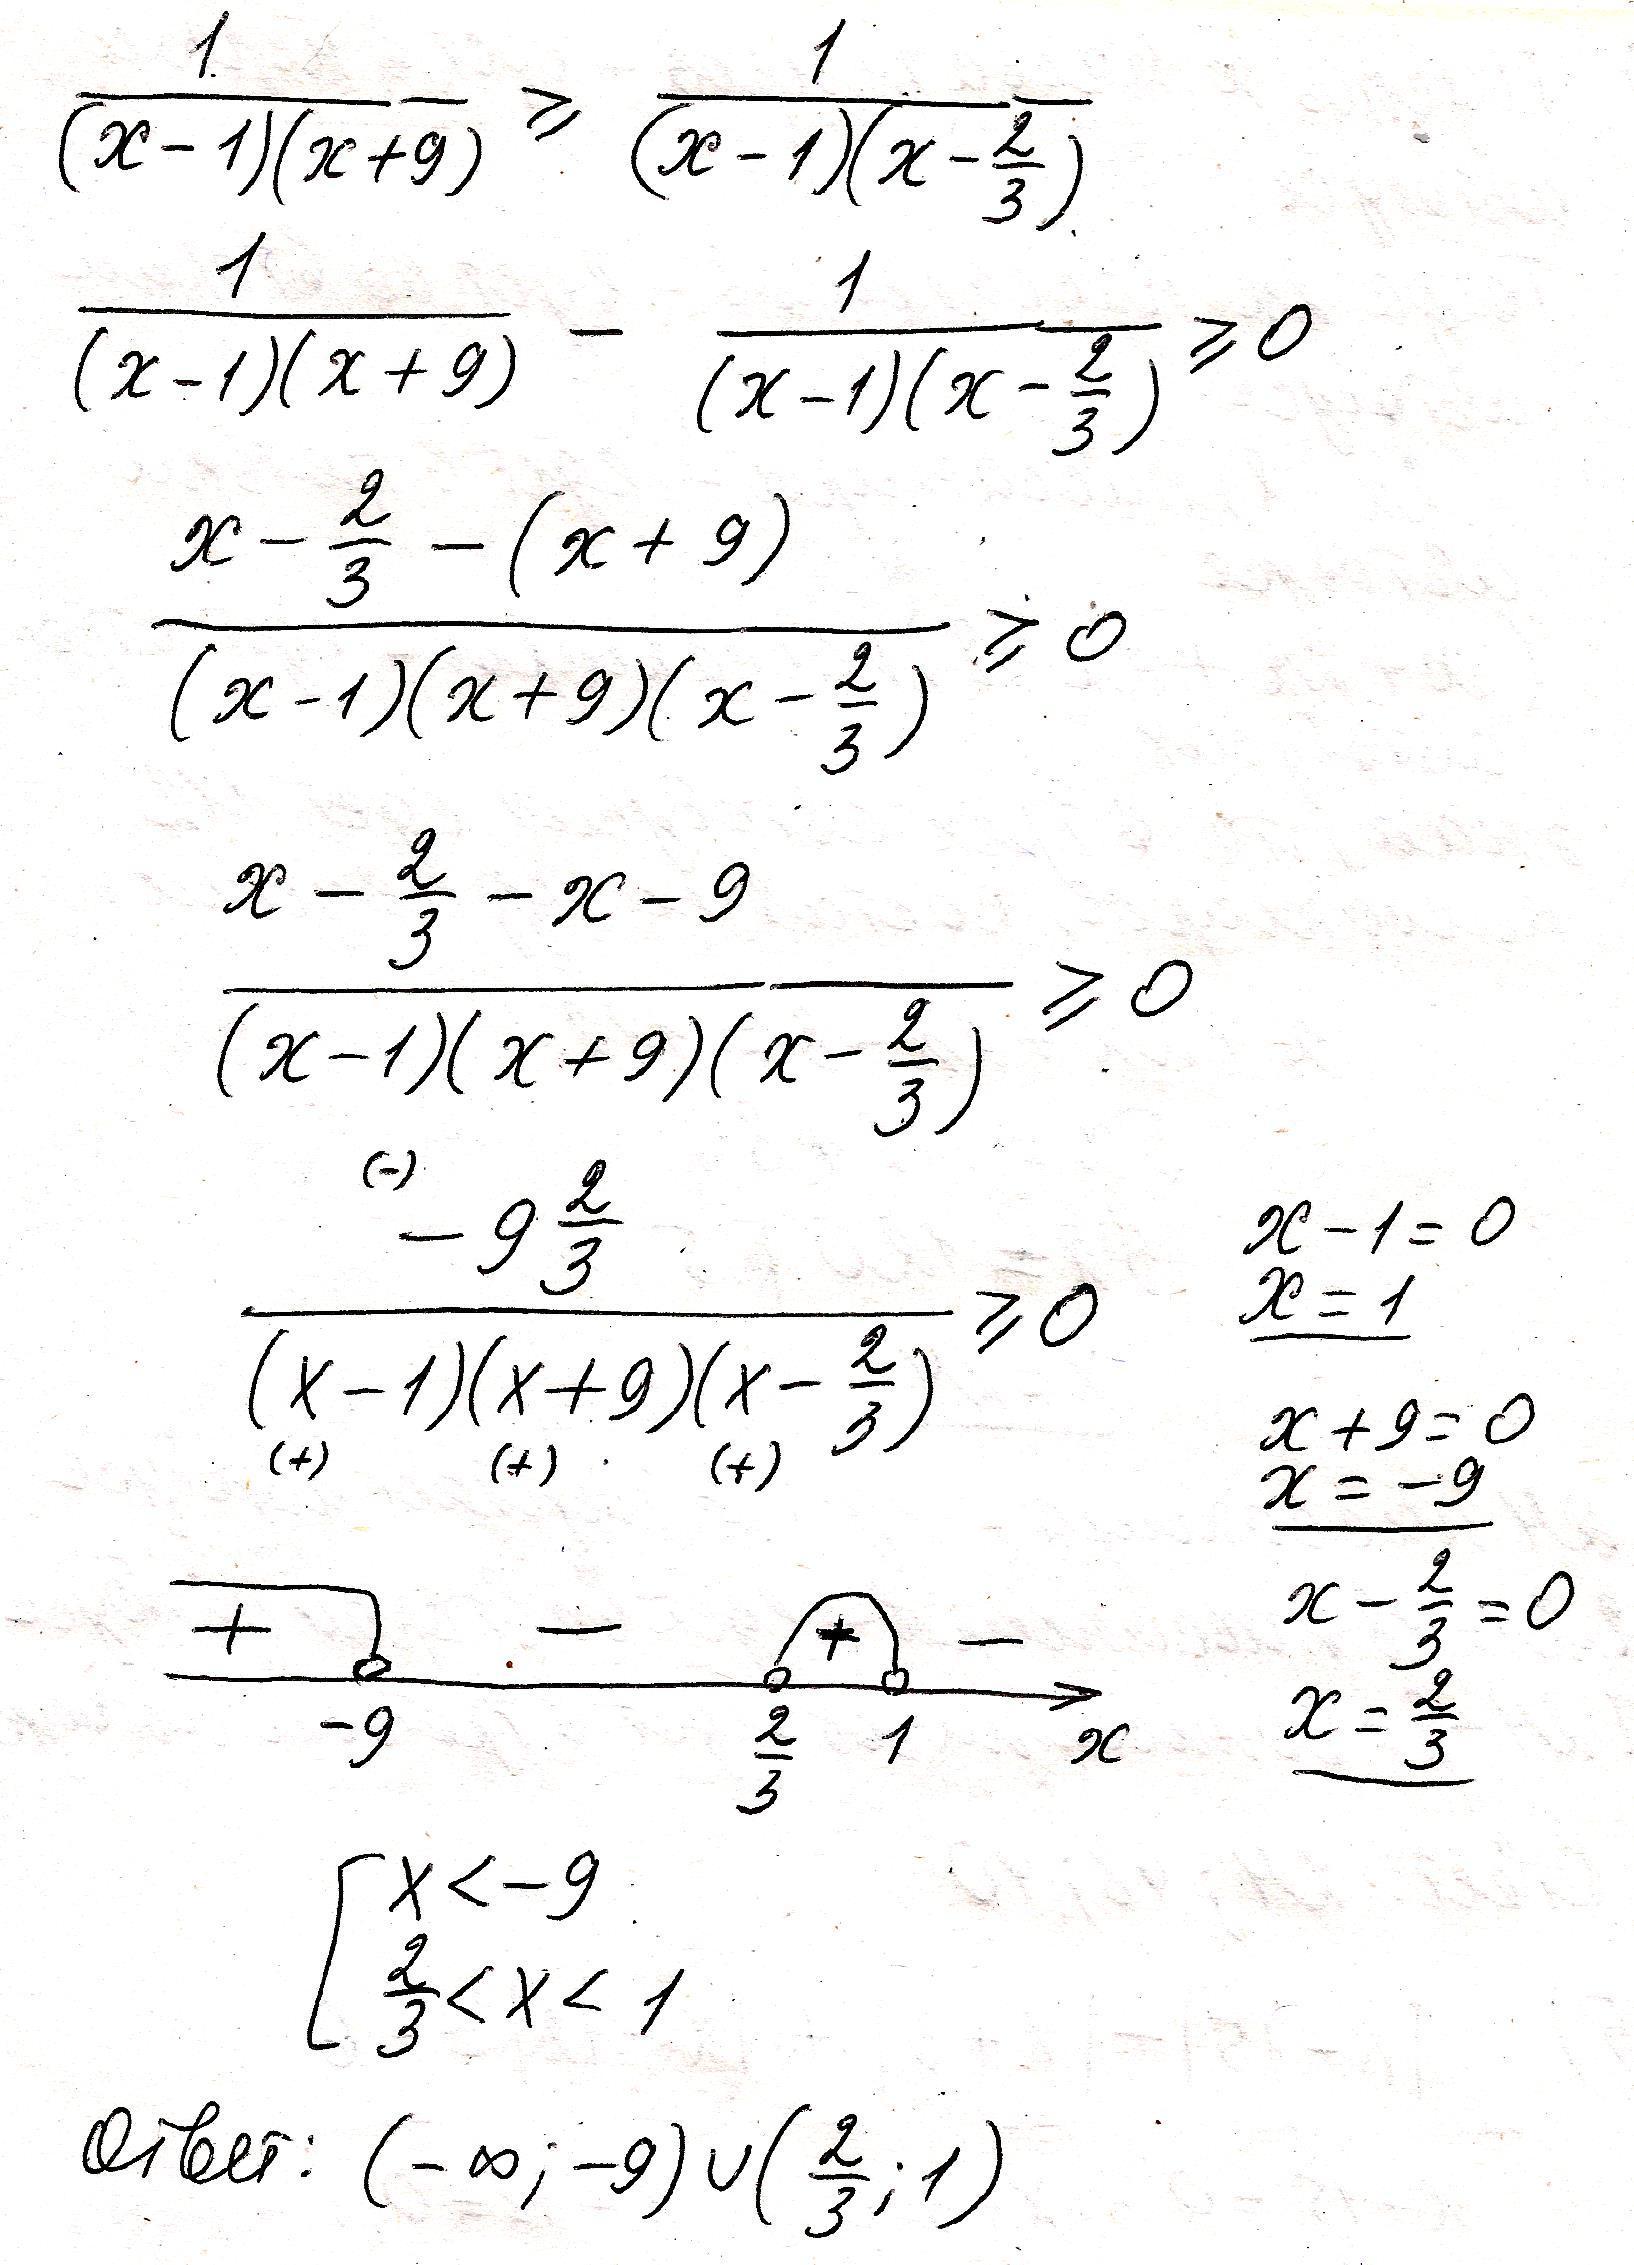 1/((x-1)(x+9)) ⩾ 1/((x-1)(x-2/3))
1/((x-1)(x+9)) - 1/((x-1)(x-2/3)) ⩾ 0
(x-2/3-(x+9))/((x-1)(x+9)(x-2/3)) ⩾ 0
(x-2/3-x-9)/((x-1)(x+9)(x-2/3)) ⩾ 0
(-)
-9 2/3/((x-1)(x+9)(x-2/3)) ⩾ 0
(+) (+) (+)
x-1=0
x=1
x+9=0
x=-9
x-2/3=0
x=2/3
+ - + -
-9 2/3 1 x
[ x<-9
2/3<x<1
Ответ: (-∞;-9)∪(2/3;1)